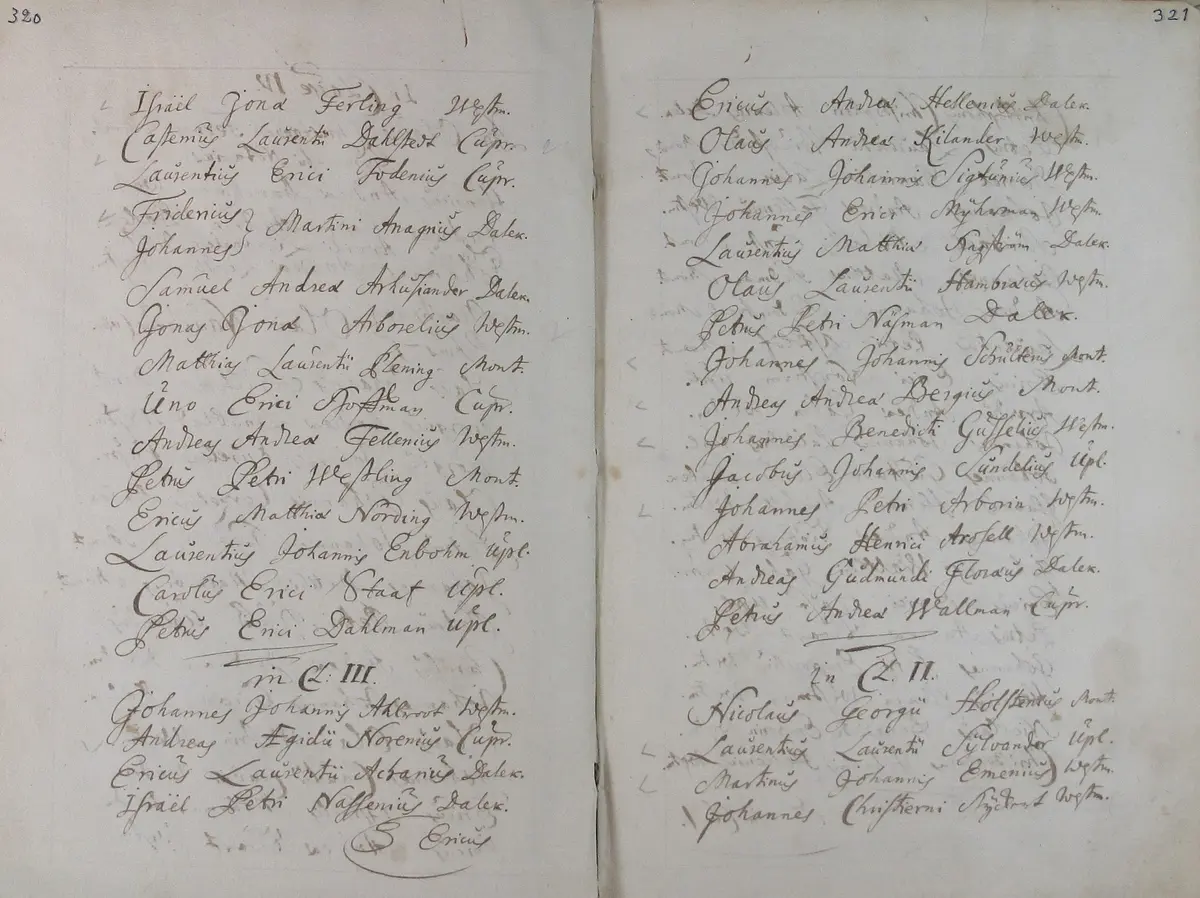 320
Israël Jonæ Ferling Westm.
Castenius Laurentii Dahlstedt Cupr.
Laurentius Erici Fodenius Cupr.
Fridericus
Johannes } Martini Anagrius Dalek.
Samuel Andreæ Arhusiander Dalek.
Jonas Jonæ Arboselius Westm.
Matthias Laurentii Plening Mont.
Uno Erici Hoffman Cupr.
Andreas Andreæ Fellenius Westm.
Petrus Petri Westling Mont.
Ericus Matthiæ Nording Westm.
Laurentius Johannis Enbohm Upl.
Carolus Erici Staaf Upl.
Petrus Erici Dahlman Upl.
in Cl: III.
Johannes Johannis Ahlroot Westm.
Andreas Ægidii Norenius Cupr.
Ericus Laurentii Acharius Dalek.
Israël Petri Nassenius Dalek.
Ericus
321
Ericus Andreæ Hellenius Dalek.
Olaus Andreæ Kilander Westm.
Johannes Johannis Sigtunius Westm.
Johannes Erici Myhrman Westm.
Laurentius Matthiæ Hagström Dalek.
Olaus Laurentii Hambræus Westm.
Petrus Petri Näsman Dalek.
Johannes Johannis Schultenius Mont.
Andreas Andreæ Bergius Mont.
Johannes Benedicti Gusselius Westm.
Jacobus Johannis Sundelius Upl.
Johannes Petri Arborin Westm.
Abrahamus Henrici Arosell Westm.
Andreas Gudmundi Floræus Dalek.
Petrus Andreæ Wallman Cupr.
in Cl. II.
Nicolaus Georgii Holstenius Mont.
Laurentius Laurentii Sylvander Upl.
Martinus Johannis Emenius Westm.
Johannes Christierni Westm.